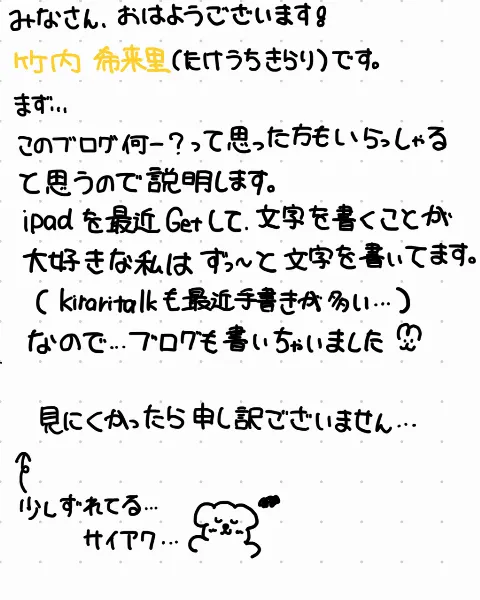 みなさん、おはようございます!
竹内 希来里(たけうちきらり)です。
まず...
このブログ何ー?って思った方もいらっしゃる
と思うので説明します。
ipadを最近Getして、文字を書くことが
大好きな私はずっ〜と文字を書いてます。
(kiraritalkも最近手書きが多い...)
なので...ブログも書いちゃいました
見にくかったら申し訳ございません...
少しずれてる...
サイアク...